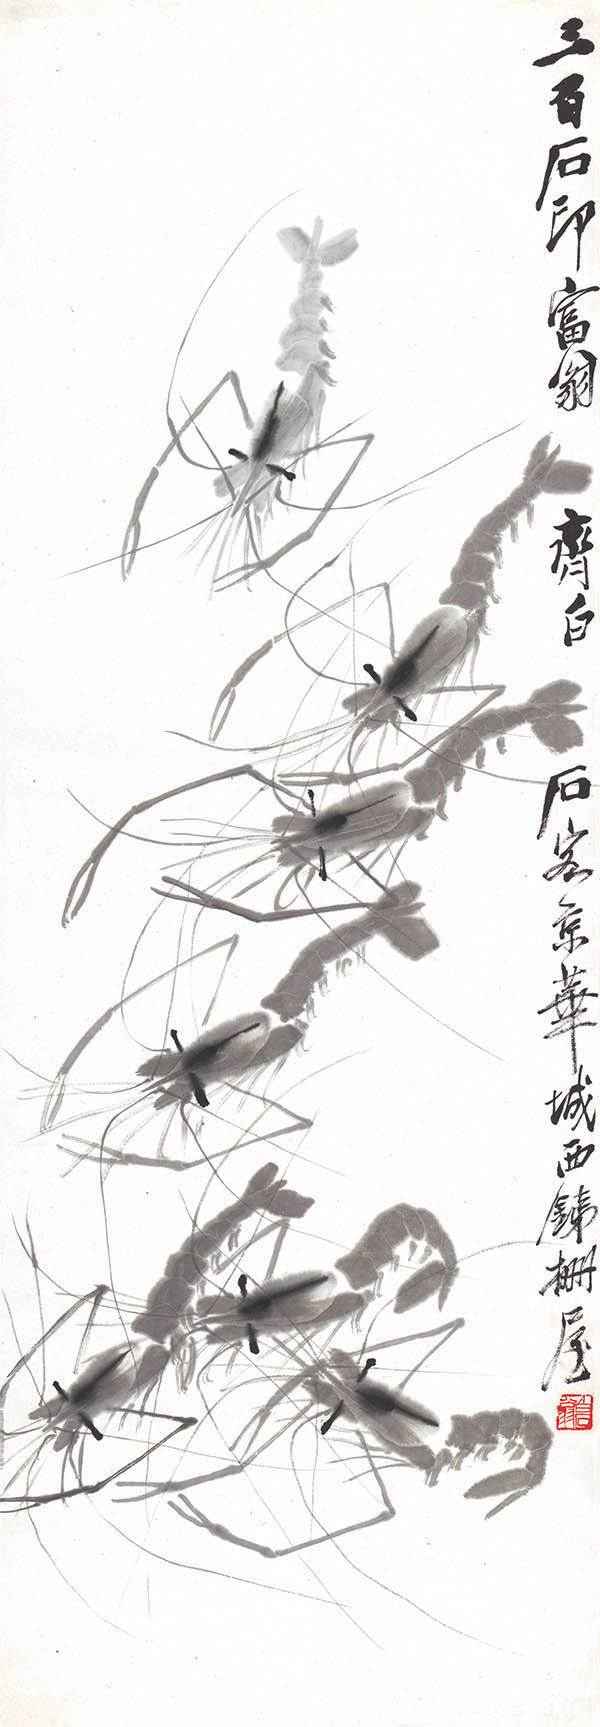 三百石印富翁 齊白石客京華城西鐵柵屋